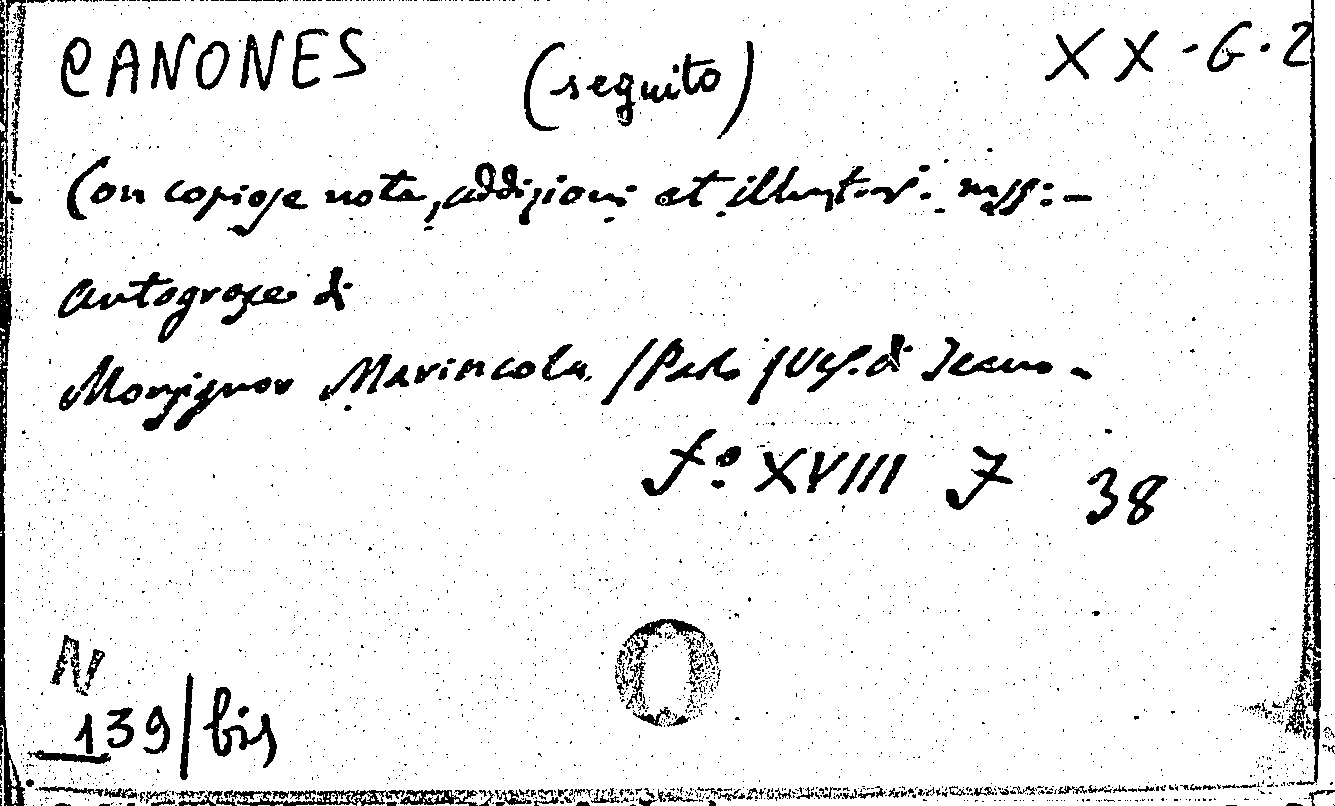 CANONES (seguito) XX-G.2
Con copiose note, addizioni et illustraz. mss:-
autografe di
Monsignor Marincola (Paolo) Vesc. di Teano -
f.º XVIII 7 38
N
139/bis